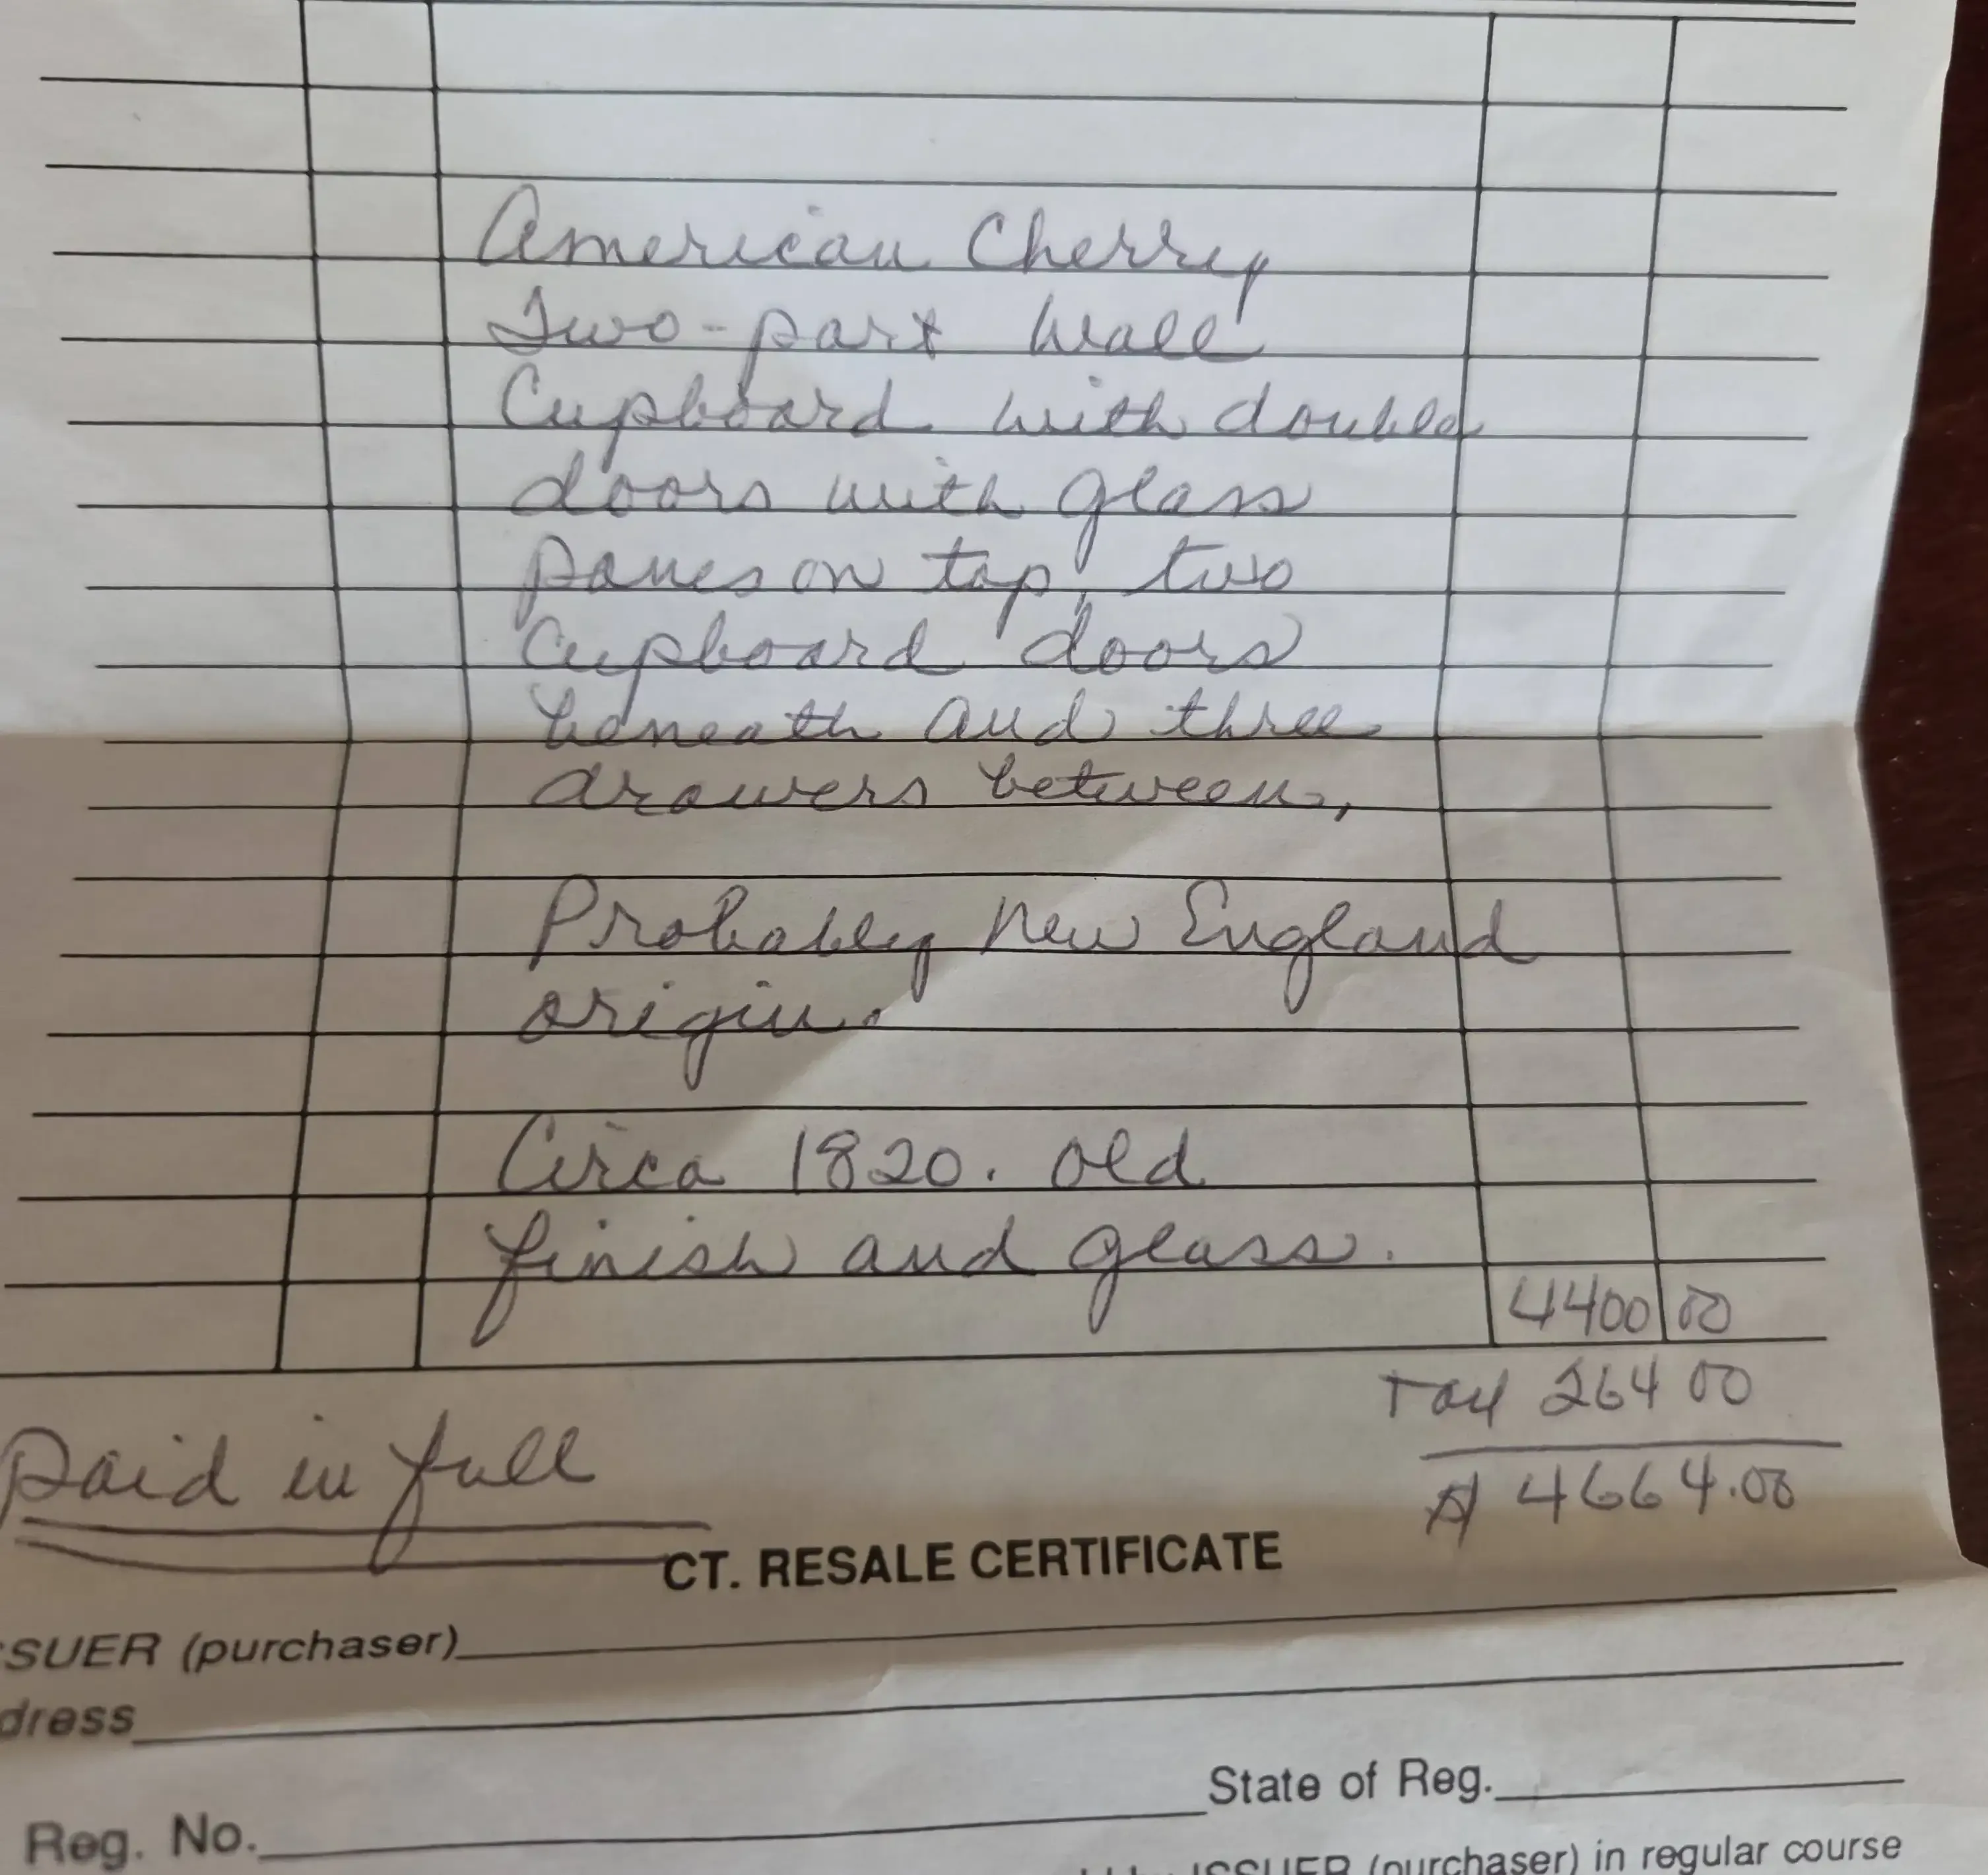 American Cherry
Two-part Wall
Cupboard with double
doors with glass
panes on top, two
Cupboard doors
beneath and three
drawers between,
Probably New England
origin.
Circa 1820. Old
finish and glass.
4400 00
Tax 264 00
Paid in full
$ 4664.00
CT. RESALE CERTIFICATE
SSUER (purchaser)
dress
State of Reg.
Reg. No.
ISSUER (purchaser) in regular course